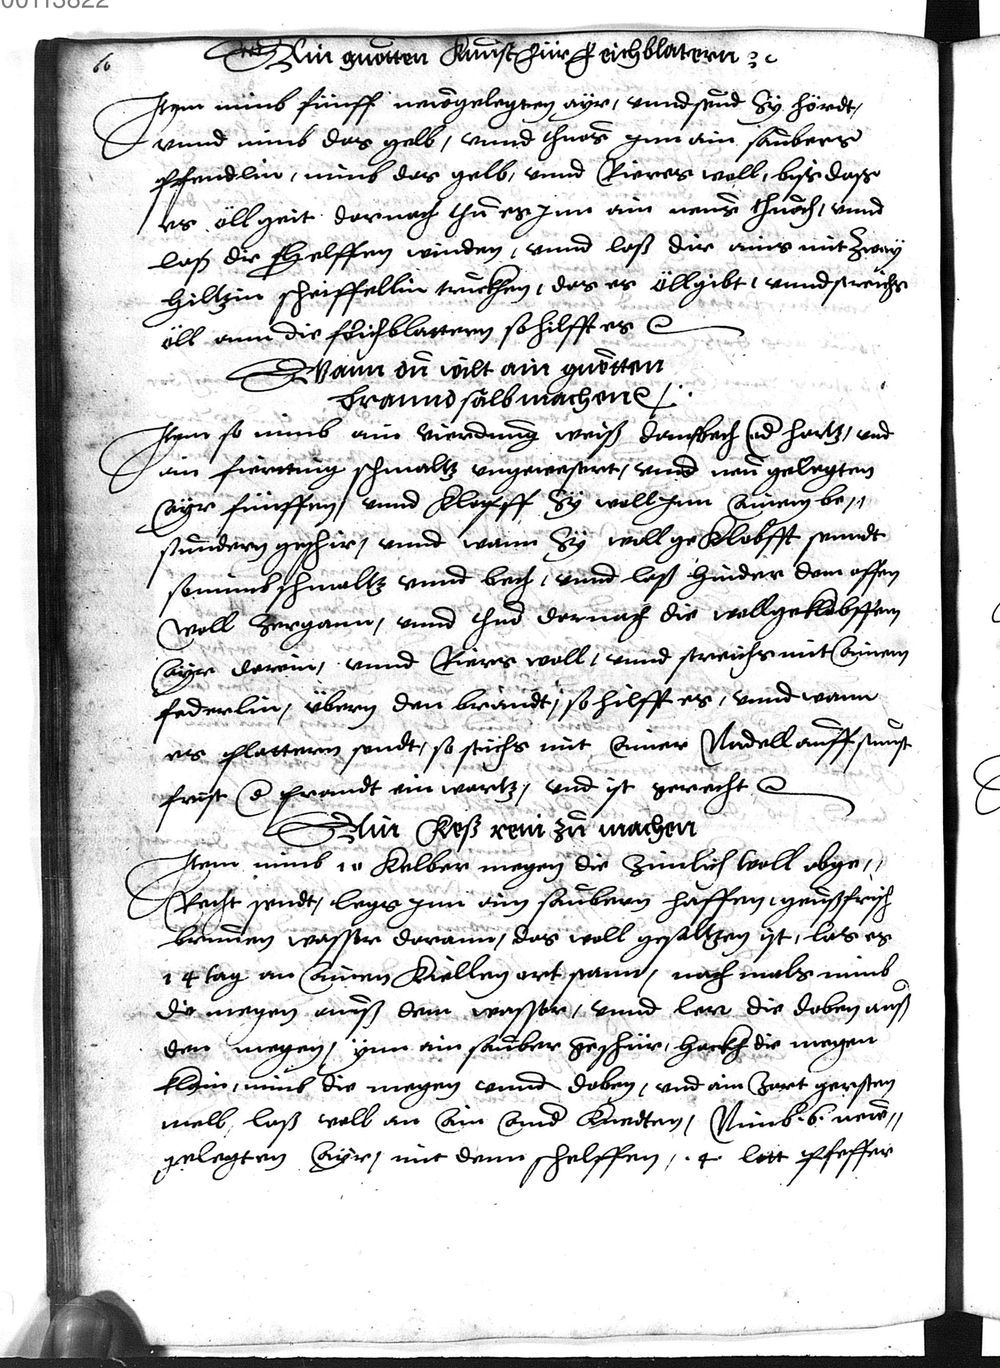 00113822
66
Ain guotten Kunst für Feichblatern
Item nimb fünff newgelegten ayr, vnnd send Sy hördt,
vnnd nimb das gelb, vnnd thuos jnn ain saubers
pfendlin, nimb das gelb, vnnd Rieres woll, biß daß
es öll geit darnach thu es jnn ain neus thuoch, vnnd
laß dir helffen winden, vnnd laß dir ains mit Zway
hiltzin scheiffellin truckhen, das es öll gibt, vnnd streichs
öll ann die feichblattern so hilfft es
Wann du wilt ain guotten
brannd salb machen
Item so nimb ain vierdung weiß danbech od hartz, vnd
ain fierttung schmaltz vngewessert, vnnd neu gelegten
Ayr fünffen, vnnd Klopff Sy woll jnn ainem be,,
sundern geschir, vnnd wann Sy woll geklobfft senndt
so nimb schmaltz vnnd bech, vnnd laß hinder dem offen
woll Zergann, vnnd thuo darnach die wollgeklobfften
Ayr darein, vnnd Rieres woll, vnnd streichs mit ainem
federlin, übern den brandt, so hilfft es, vnnd wann
es plattern sendt, so stichs mit ainer Nadell auff sunst
frist d brandt ein wartz, vnd ist gerecht
Ain Keß reni zu machen
Item nimb 10 Kelber megen die Zimlich woll abge,,
Recht sendt, legs jnn ain saubern haffen, geuß frisch
brunnen wasser darann, das woll gesaltzen ist, las es
14 tag an ainen Kiellen ort stann, nach mals nimb
die megen auß dem wasser, vnnd ler die doben auß
den megen, ynn ain sauber geschir, hackh die megen
klain, nimb die megen vnnd doben, vnd ain Zart gersten
melb, laß woll an ain annd Knedten, Nimb .6. new,,
gelegten Ayr, mit denn schelffen, . 4 lott pfeffer